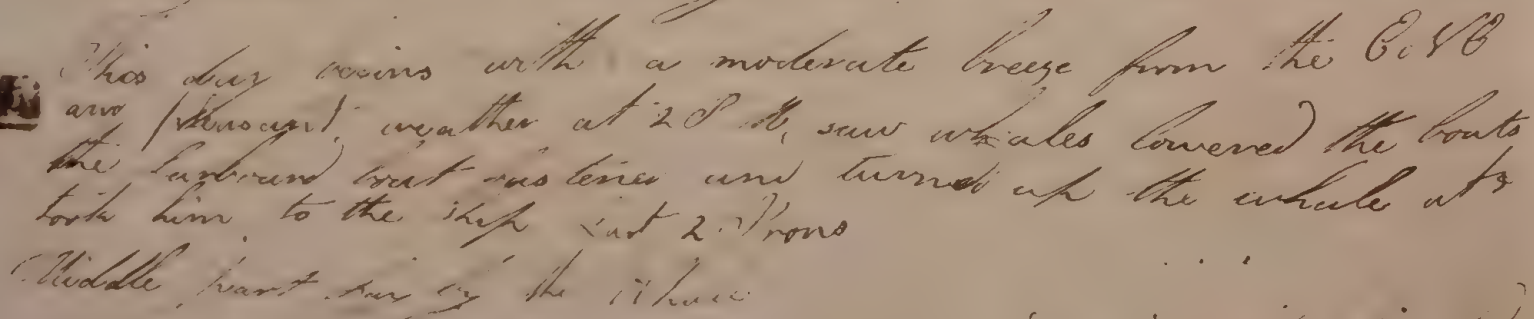 This day begins with a moderate breeze from the E
and pleasant weather at 2 P M, saw whales lowered the boats
the larboard boat fastened and turned up the whale at 3
took him to the ship Lost 2 Irons
Middle part lay by the Whale